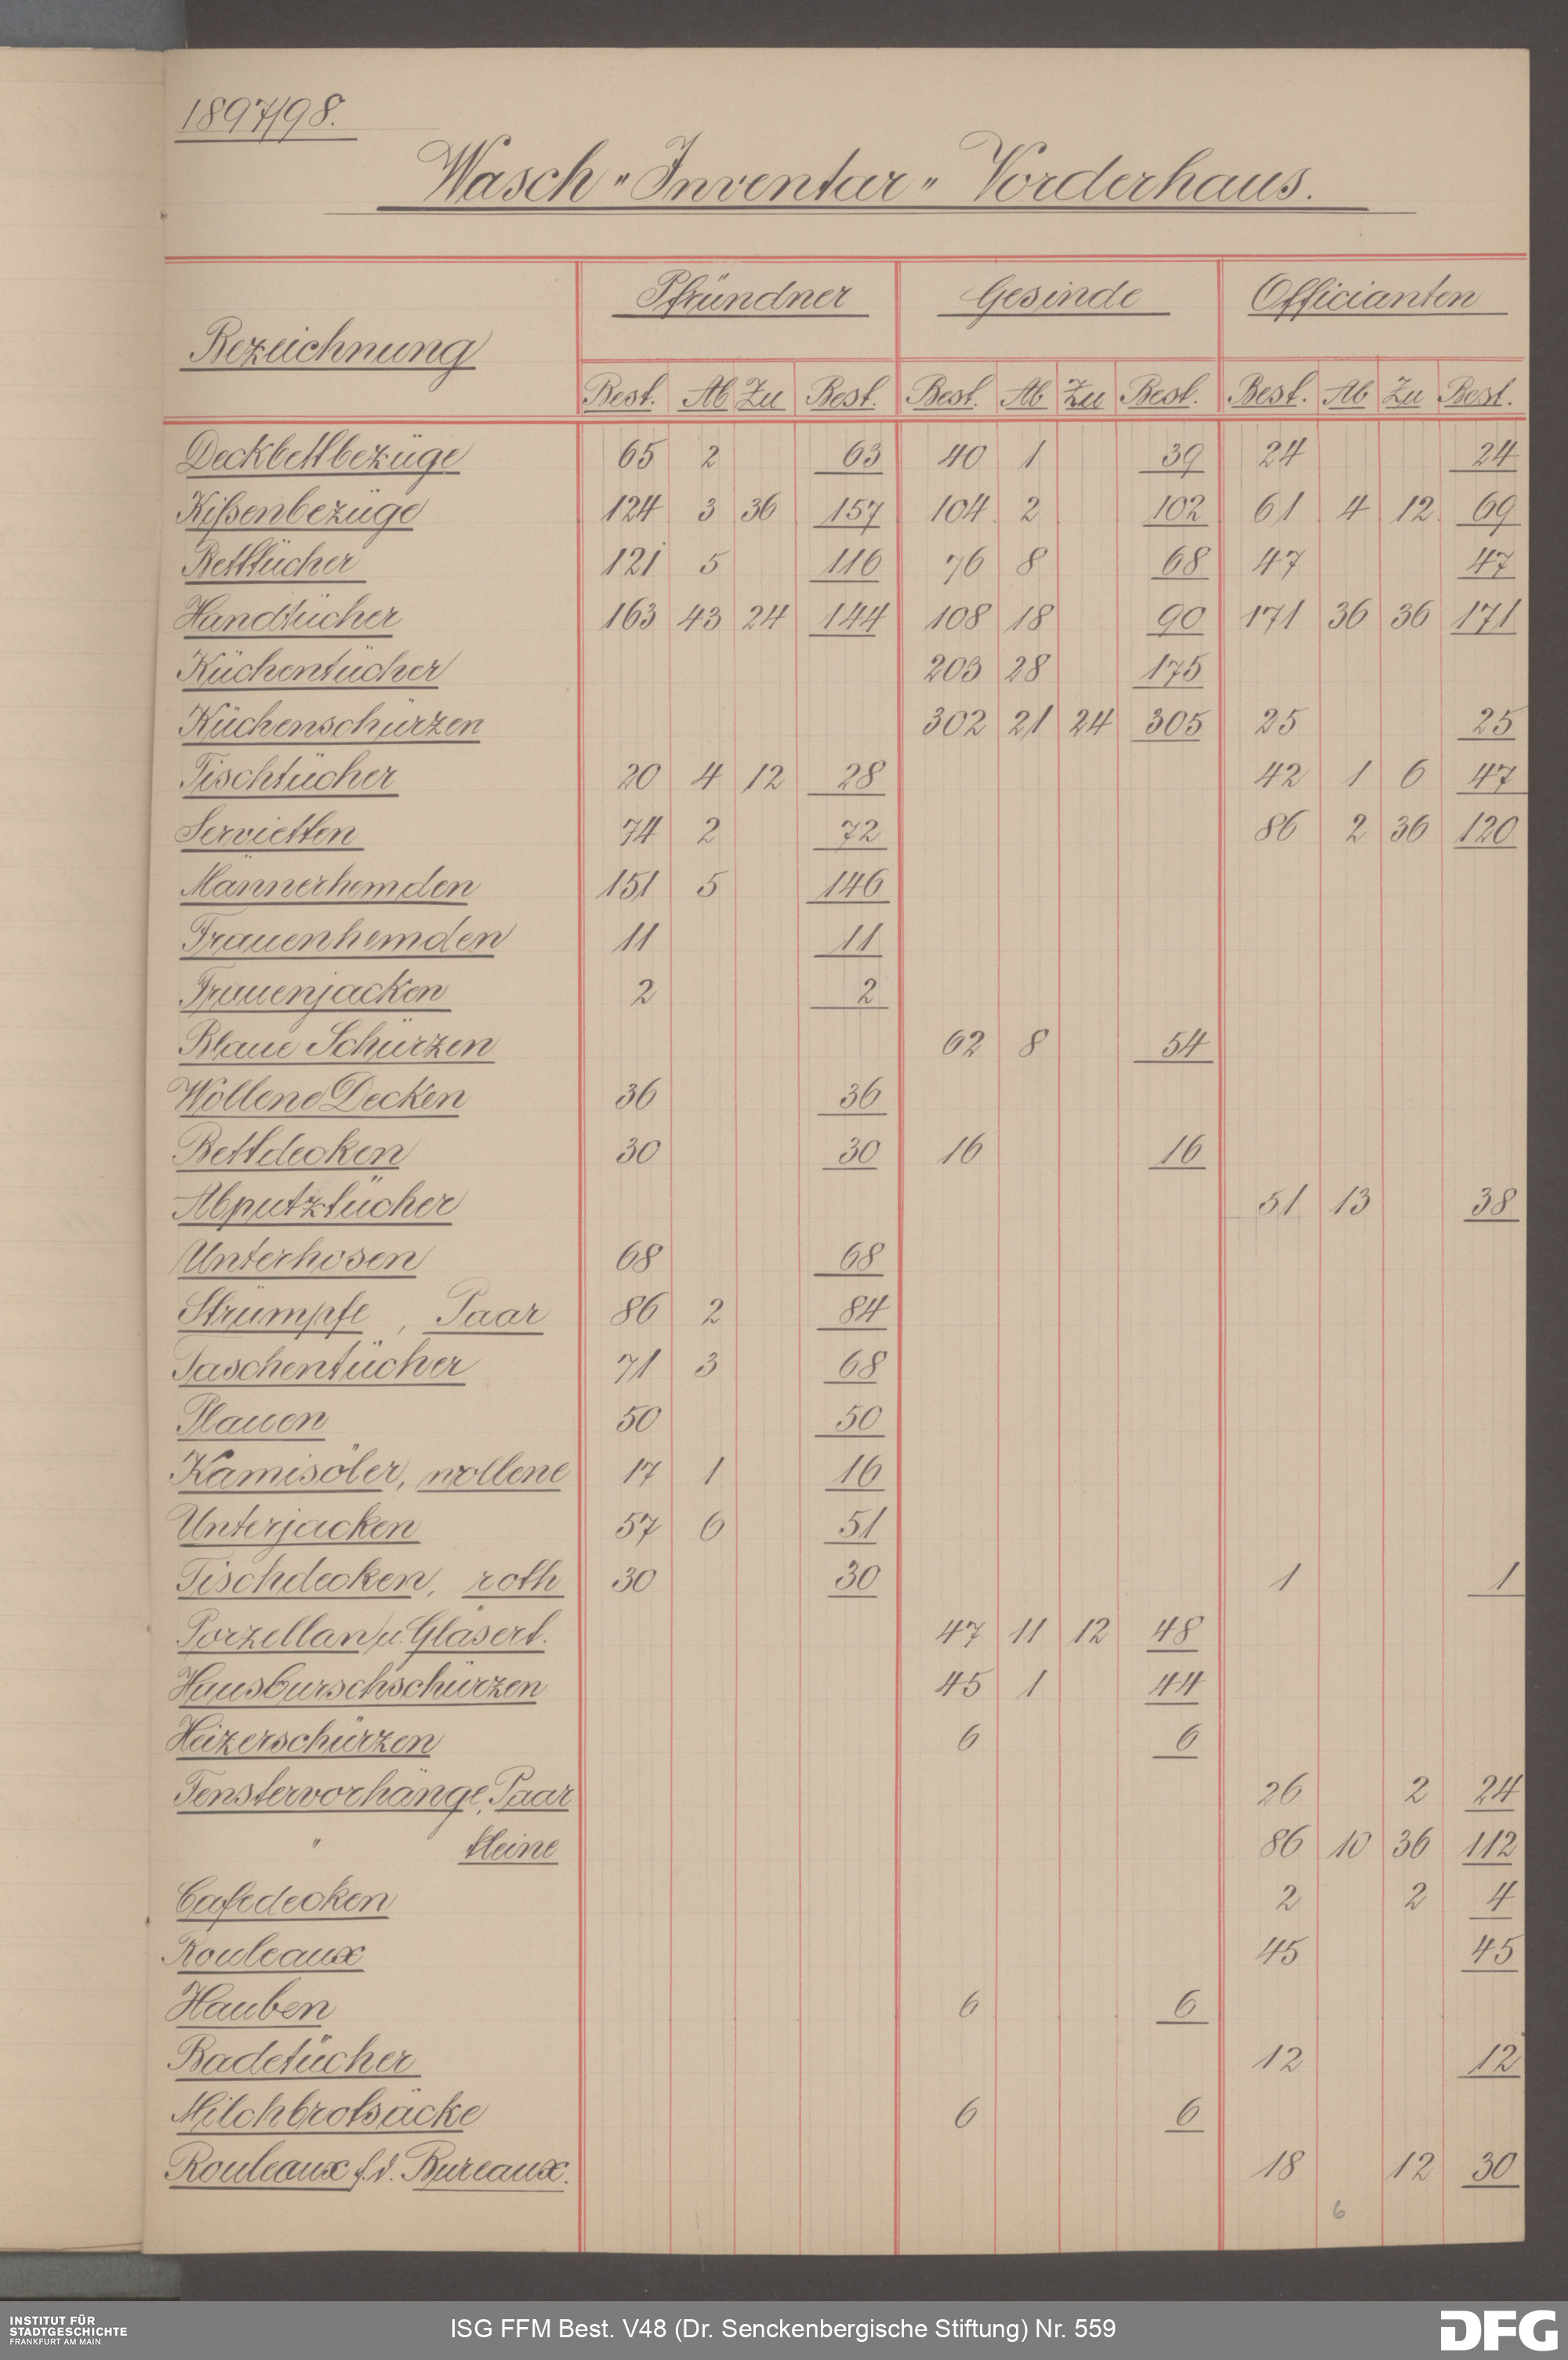 1897/98.
Wasch „Inventar„ Vorderhaus.
Bezeichnung Pfründner Gesinde Officianten
Best. Ab Zu Best. Best. Ab Zu Best. Best. Ab Zu Best.
Deckbettbezüge 65 2 63 40 1 39 24 24
Kißenbezüge 124 3 36 157 104 2 102 61 4 12 69
Betttücher 121 5 116 76 8 68 47 47
Handtücher 163 43 24 144 108 18 90 171 36 36 171
Küchentücher 203 28 175
Küchenschürzen 302 21 24 305 25 25
Tischtücher 20 4 12 28 42 1 6 47
Servietten 74 2 72 86 2 36 120
Männerhemden 151 5 146
Frauenhemden 11 11
Frauenjacken 2 2
Blaue Schürzen 62 8 54
Wollene Decken 36 36
Bettdecken 30 30 16 16
Abputztücher 51 13 38
Unterhosen 68 68
Strümpfe, Paar 86 2 84
Taschentücher 71 3 68
Plauen 50 50
Kamisöler, wollene 17 1 16
Unterjacken 57 6 51
Tischdecken, roth 30 30 1 1
Porzellan u. Gläsert. 47 11 12 48
Hausburschschürzen 45 1 44
Heizerschürzen 6 6
Fenstervorhänge, Paar 26 2 24
" kleine 86 10 36 112
Cafedecken 2 2 4
Rouleaux 45 45
Hauben 6 6
Badetücher 12 12
Milchbrotsäcke 6 6
Rouleaux f. d. Bureaux. 18 12 30
6
INSTITUT FÜR
STADTGESCHICHTE
FRANKFURT AM MAIN
ISG FFM Best. V48 (Dr. Senckenbergische Stiftung) Nr. 559
DFG